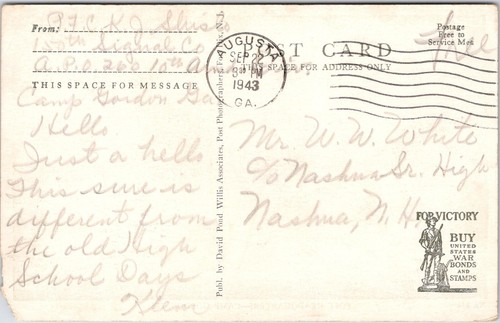 From: Pfc K. J.
150th Signal Co
A.P.O. 260 10th A
THIS SPACE FOR MESSAGE
Camp Gordon Ga.
Hello
Just a hello
This sure is
different from
the old High
School Days
Klem
Publ. by David Pond Willis Associates, Post Photographers, Fort Dix, N. J.
POST CARD
THIS SPACE FOR ADDRESS ONLY
AUGUSTA
SEP 22
PM
1943
GA.
Postage
Free to
Service Men
Free
Mr. W. W. White
c/o Nashua Sr. High
Nashua, N. H.
FOR VICTORY
BUY
UNITED
STATES
WAR
BONDS
AND
STAMPS